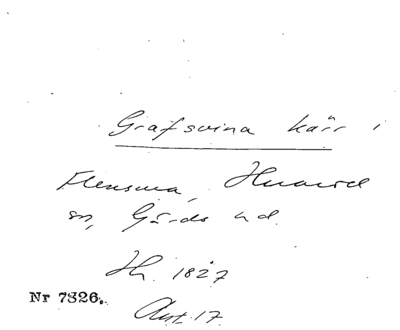 Grafsvina kärr i
Flensma, Huaröd
sn, Gärds hd.
1827
Nr 7326.
17.